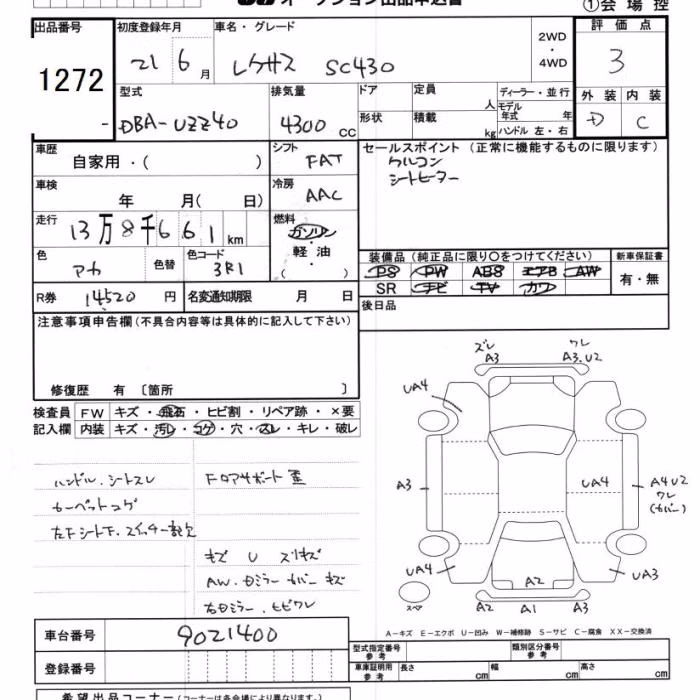 オークション出品申込書
①会場控
出品番号
1272
-
初度登録年月
21 6月
車名・グレード
レクサス SC430
2WD
・
4WD
評価点
3
型式
DBA-UZZ40
排気量
4300 CC
ドア
定員
人
形状
積載
kg
ディーラー・並行
モデル
年式 年
ハンドル 左・右
外装 内装
D C
車歴
自家用・( )
シフト
FAT
セールスポイント (正常に機能するものに限ります)
クルコン
シートヒーター
車検
年 月( 日)
冷房
AAC
走行
13万8千661km
燃料
ガソリン
・
軽油
・
( )
色
アカ
色替
色コード
3R1
装備品 (純正品に限り○をつけてください)
PS PW ABS エアB AW
SR ナビ TV カワ
新車保証書
有・無
R券 14520 円
名変通知期限 月 日
後日品
注意事項申告欄(不具合内容等は具体的に記入して下さい)
修復歴 有 〔箇所 〕
検査員
記入欄
FW キズ・飛石・ヒビ割・リペア跡・×要
内装 キズ・汚レ・コゲ・穴・スレ・キレ・破レ
ハンドル、シートスレ
カーペットコゲ
左Fシート下、スイッチ一部欠
Fロアサポート歪
キズ U スリキズ
AW、ドミラーカバーキズ
右ドミラー、ヒビワレ
ズレ
A3
ワレ
A3、U2
UA4
A3
UA4
A4U2
ワレ
(カバー)
UA4
UA3
A2
スペア
A2 A1 A3
A-キズ E-エクボ U-凹み W-補修跡 S-サビ C-腐食 XX-交換済
車台番号
9021400
登録番号
型式指定番号
参考
類別区分番号
参考
車庫証明用
参考
長さ cm
幅 cm
高さ cm
希望出品コーナー(コーナーは各会場により異なります。)